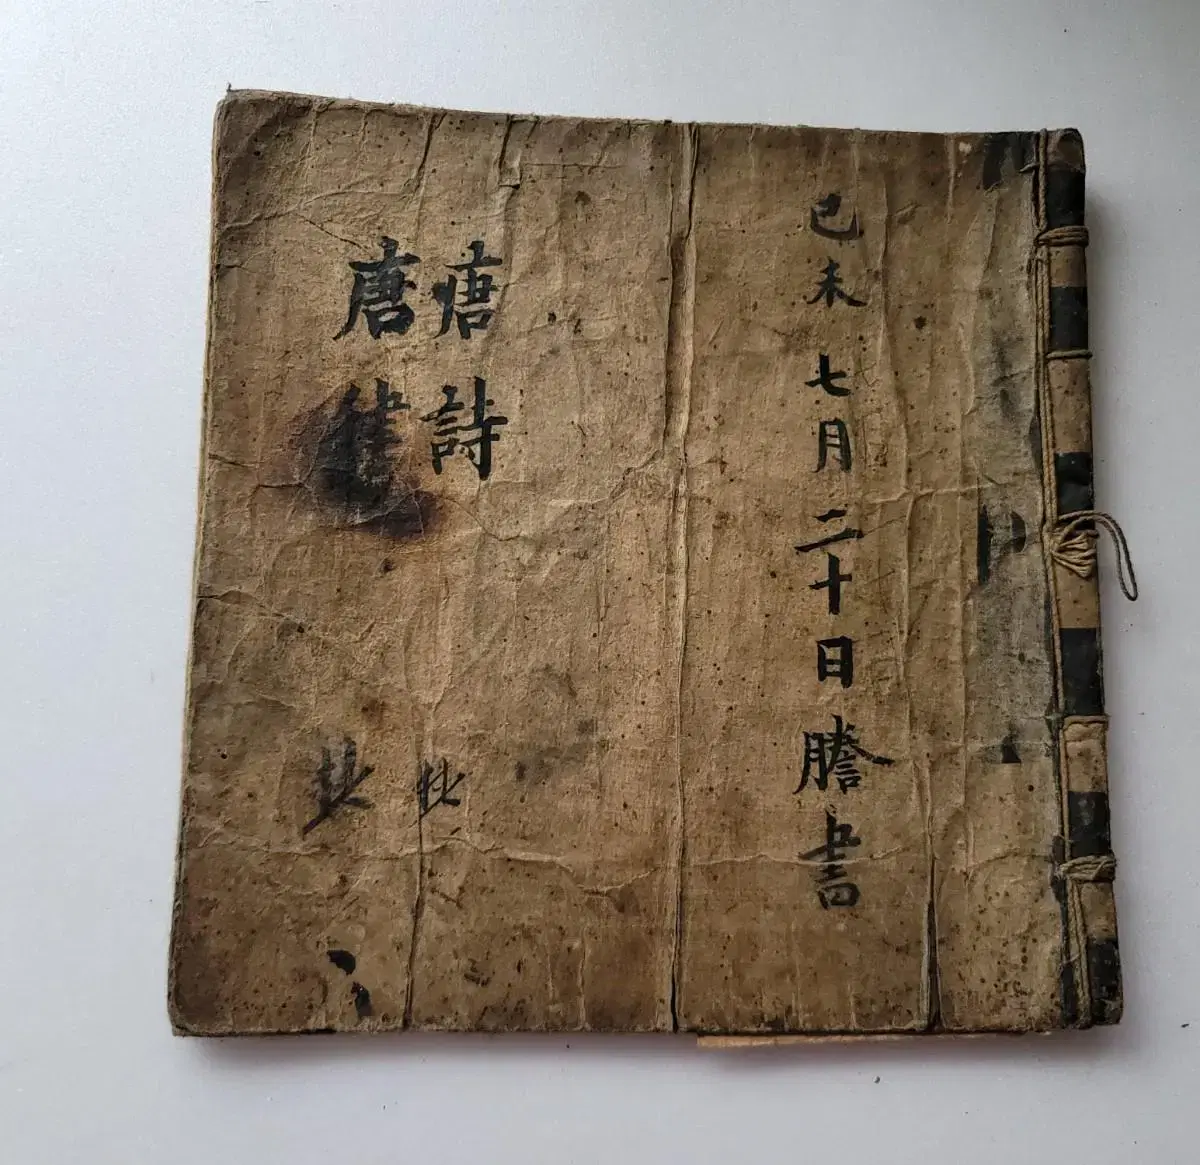 己未 七月 二十日 謄書
唐詩
唐